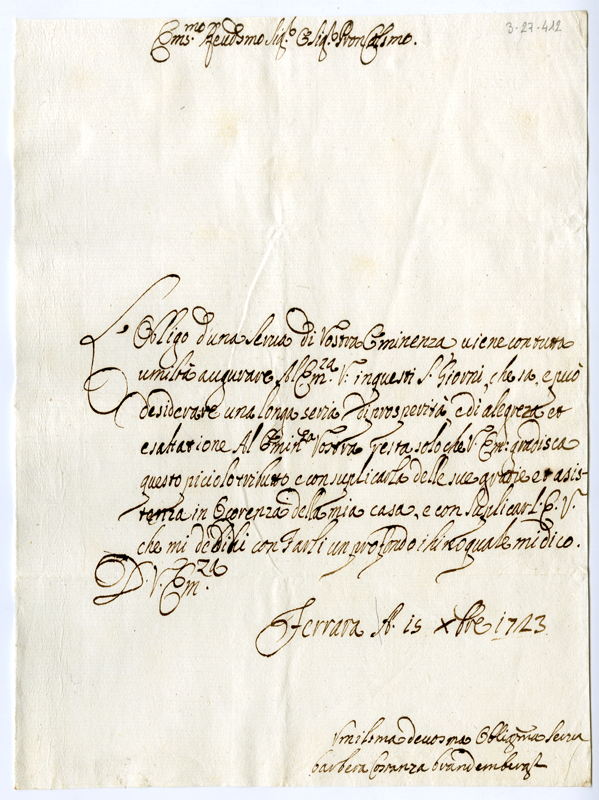 3-27-412
Em.mo Reu.dsmo Sig.e e Sig.e Pron Colsmo.
L'Obligo d'una Serua di Vostra Eminenza uiene con tutta
umiltà augurare Al Em.za V: in questi S. Giorni che sa, e può
desiderare una longa seria di prosperità e di alegreza et
esaltatione Al Emin.za Vostra resta solo che V. Em: gradisca
questo piciolo tributo e con suplicarla delle sue gratie et asis-
tenza in ocorenza della mia casa, e con suplicarl. E. V.
che mi con farli un profondo ihino quale mi dico.
D. V. Em.za
Ferrara A. 15 Xbre 1723
Vmilsma deuosma Oblig.ma Serua
barbera Costanza brandemburgst